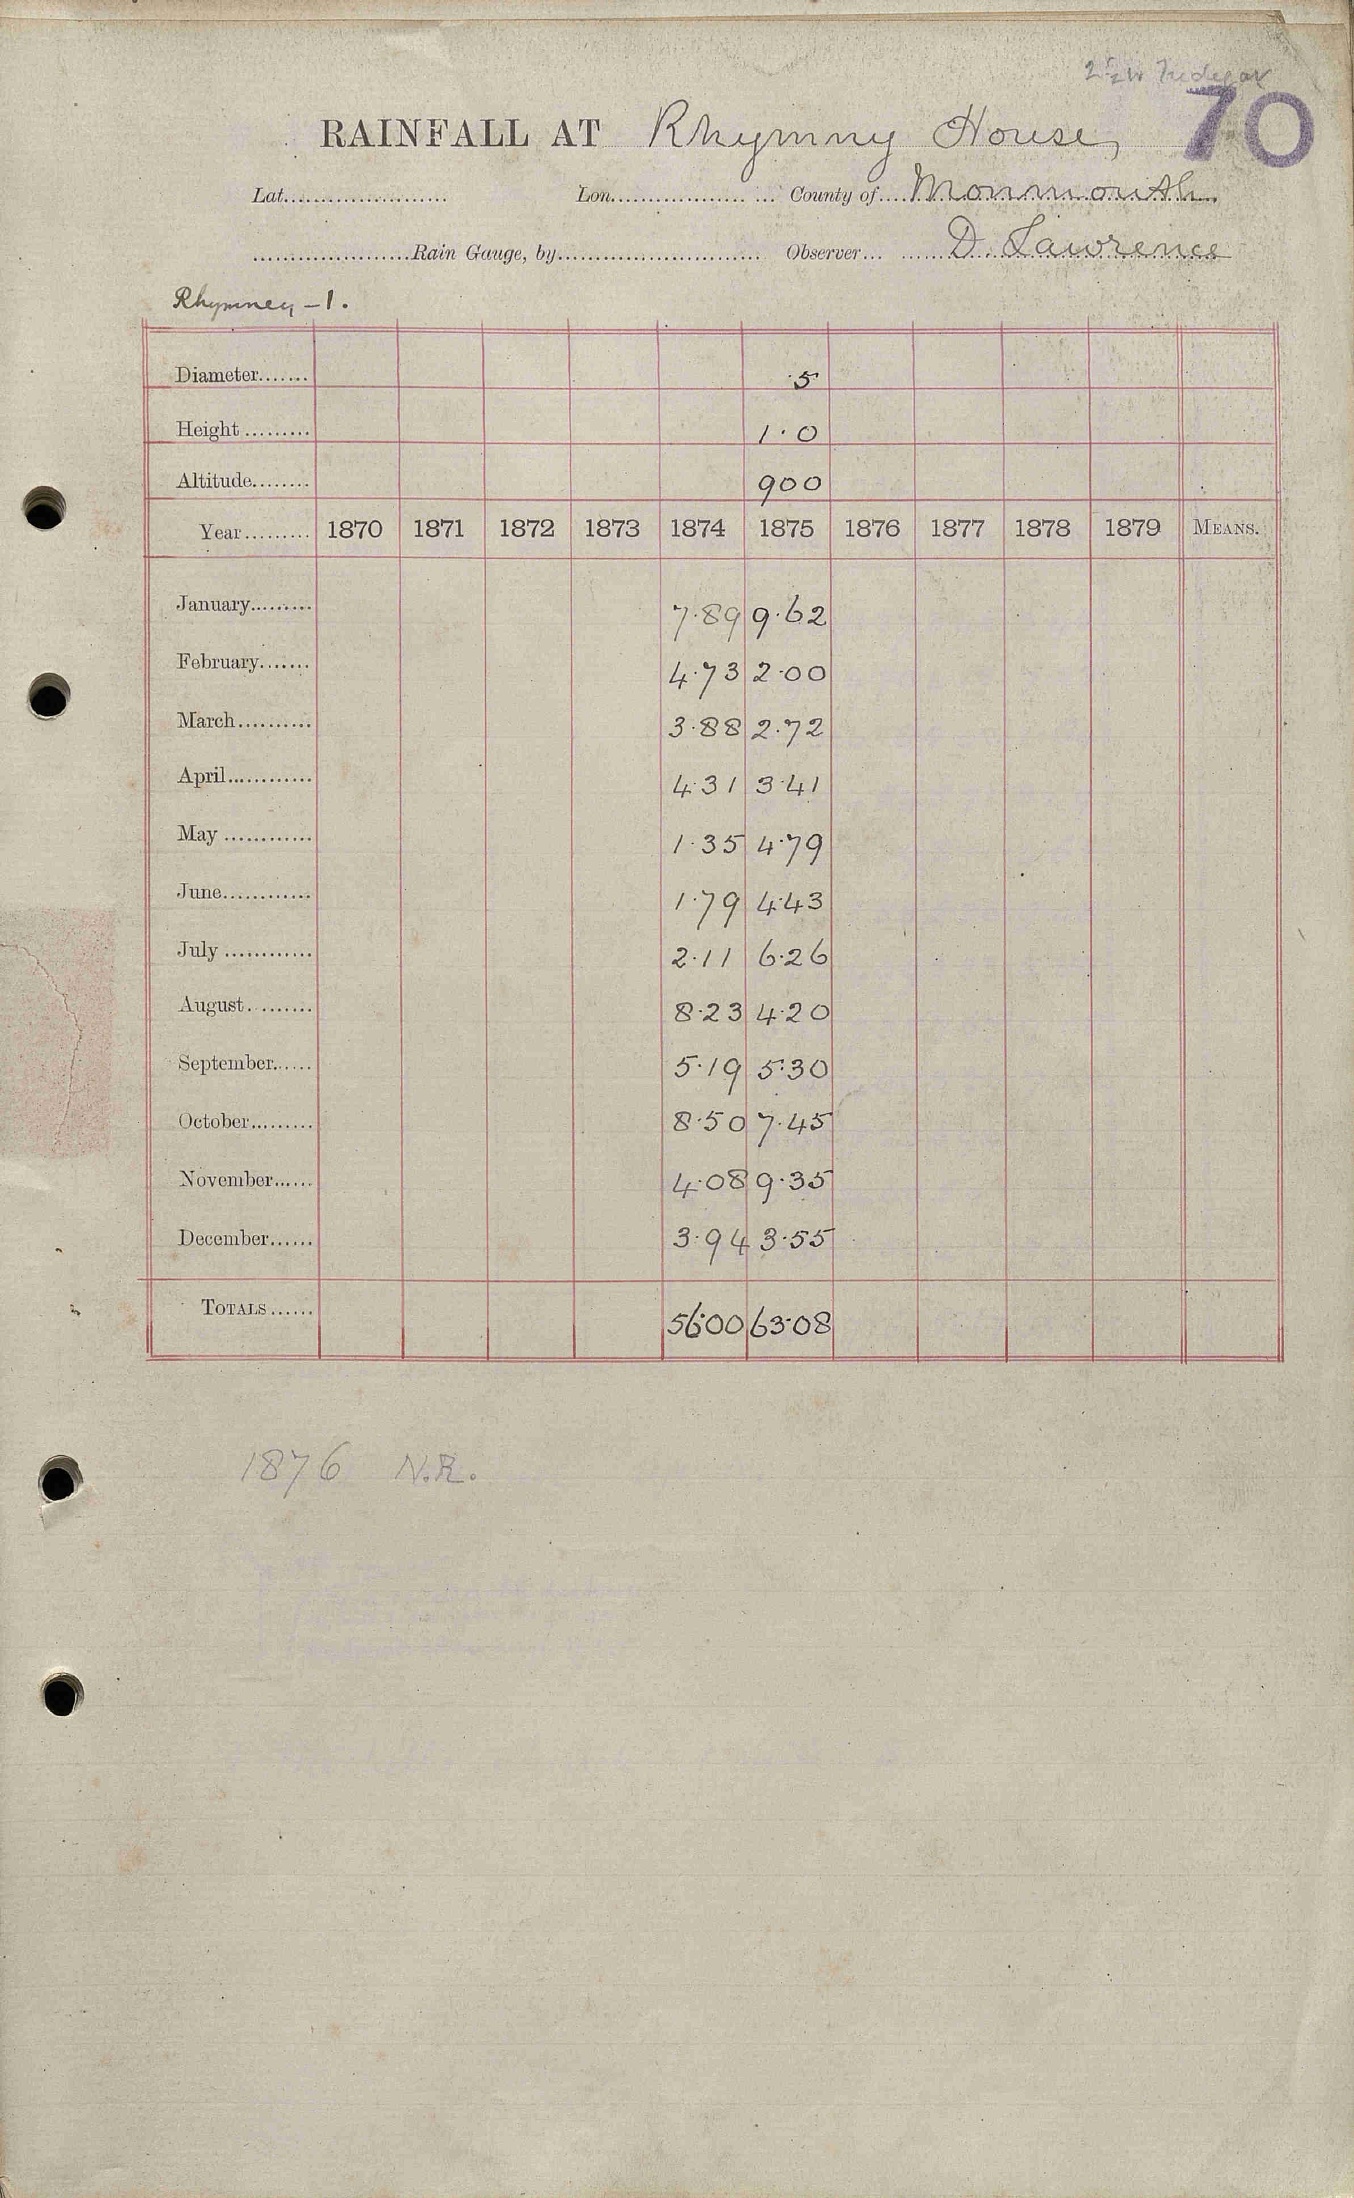 2½ W Tredegar
70
RAINFALL AT Rhymny House,
Lat. Lon. County of Monmouth
Rain Gauge, by Observer D. Lawrence
Rhymney - 1.
Diameter 5
Height 1.0
Altitude 900
Year 1870 1871 1872 1873 1874 1875 1876 1877 1878 1879 MEANS.
January 7.89 9.62
February 4.73 2.00
March 3.88 2.72
April 4.31 3.41
May 1.35 4.79
June 1.79 4.43
July 2.11 6.26
August 8.23 4.20
September 5.19 5.30
October 8.50 7.45
November 4.08 9.35
December 3.94 3.55
TOTALS 56.00 63.08
1876 N.R.